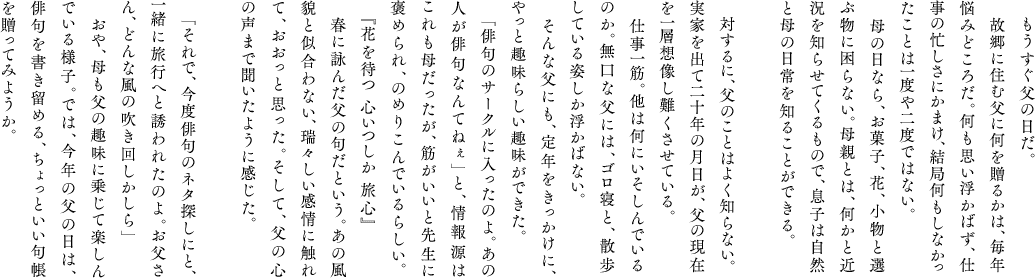 もうすぐ父の日だ。
故郷に住む父に何を贈るかは、毎年
悩みどころだ。何も思い浮かばず、仕
事の忙しさにかまけ、結局何もしなかっ
たことは一度や二度ではない。
母の日なら、お菓子、花、小物と選
ぶ物に困らない。母親とは、何かと近
況を知らせてくるもので、息子は自然
と母の日常を知ることができる。
対するに、父のことはよく知らない。
実家を出て二十年の月日が、父の現在
を一層想像し難くさせている。
仕事一筋。他は何にいそしんでいる
のか。無口な父には、ゴロ寝と、散歩
している姿しか浮かばない。
そんな父にも、定年をきっかけに、
やっと趣味らしい趣味ができた。
「俳句のサークルに入ったのよ。あの
人が俳句なんてねぇ」と、情報源は
これも母だったが、筋がいいと先生に
褒められ、のめりこんでいるらしい。
『花を待つ 心いつしか 旅心』
春に詠んだ父の句だという。あの風
貌と似合わない、瑞々しい感情に触れ
て、おおっと思った。そして、父の心
の声まで聞いたように感じた。
「それで、今度俳句のネタ探しにと、
一緒に旅行へと誘われたのよ。お父さ
ん、どんな風の吹き回しかしら」
おや、母も父の趣味に乗じて楽しん
でいる様子。では、今年の父の日は、
俳句を書き留める、ちょっといい句帳
を贈ってみようか。